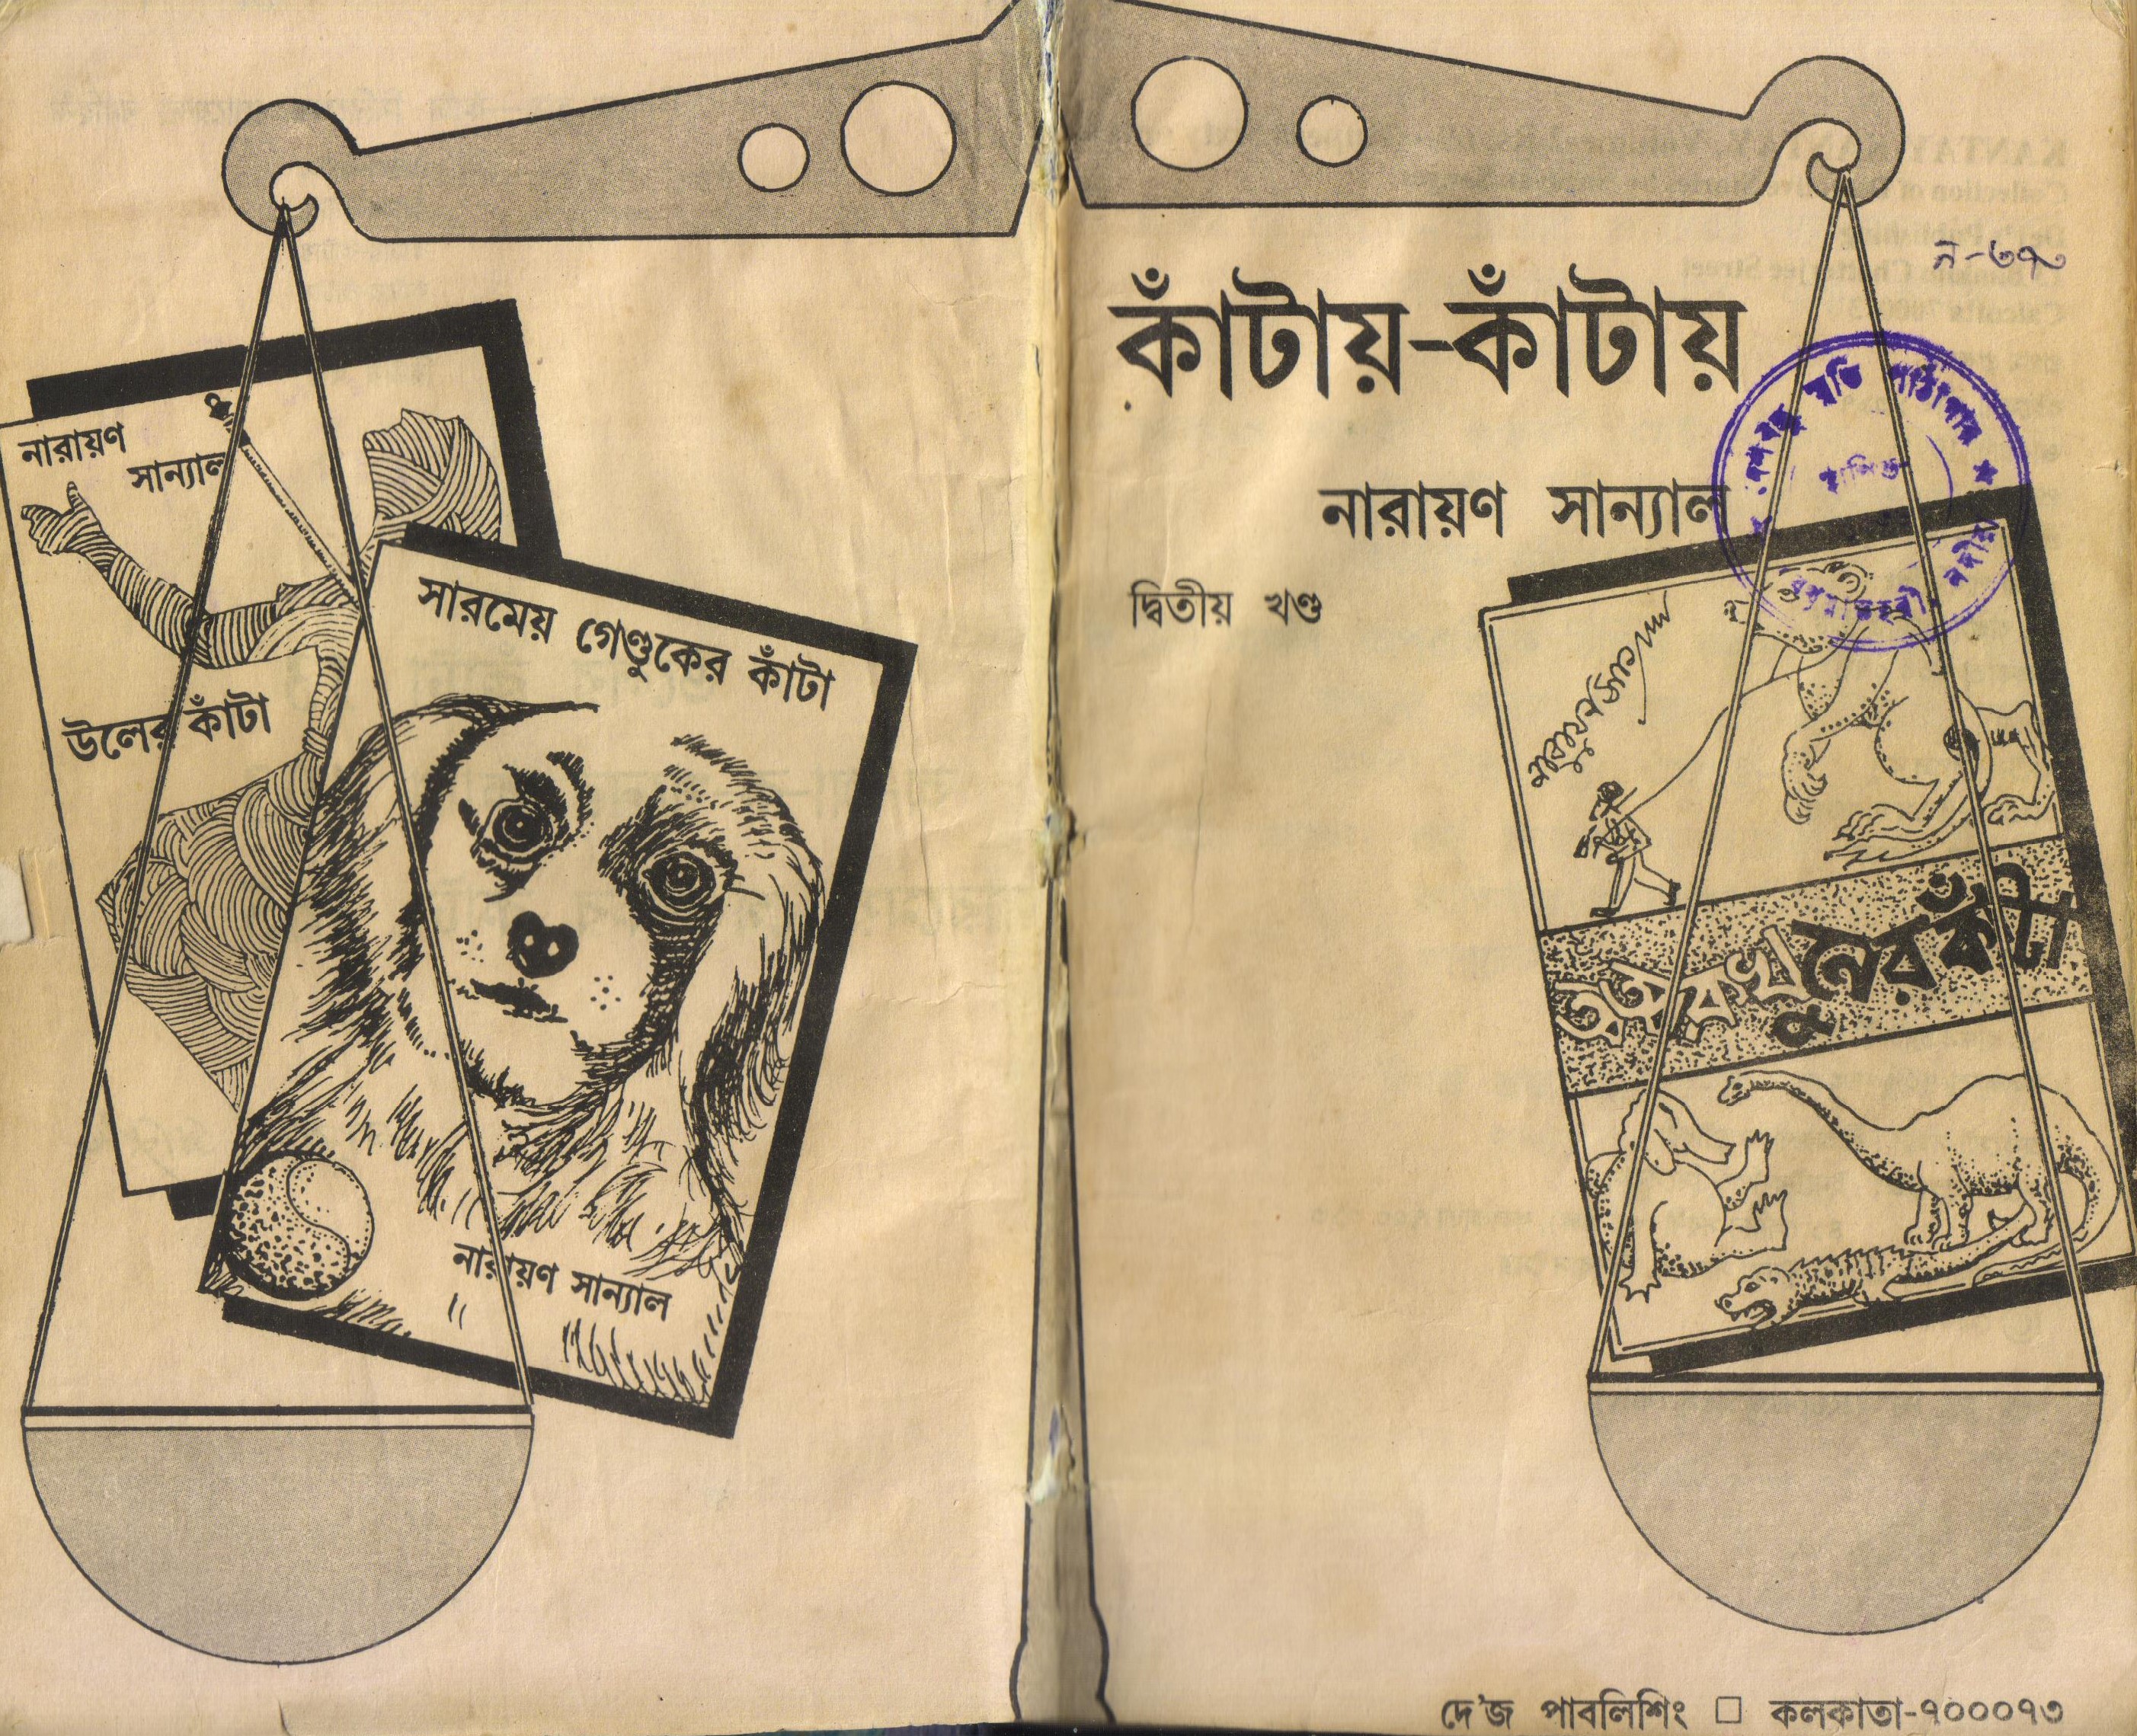 নারায়ণ
সান্যাল
উলের কাঁটা
সারমেয় গেণ্ডুকের কাঁটা
নারায়ণ সান্যাল
ন-৩৭
কাঁটায়-কাঁটায়
নারায়ণ সান্যাল
দ্বিতীয় খণ্ড
স্মৃতি পাঠাগার
নারায়ণ সান্যাল
কাঁটা
দে'জ পাবলিশিং □ কলকাতা-৭০০০৭৩